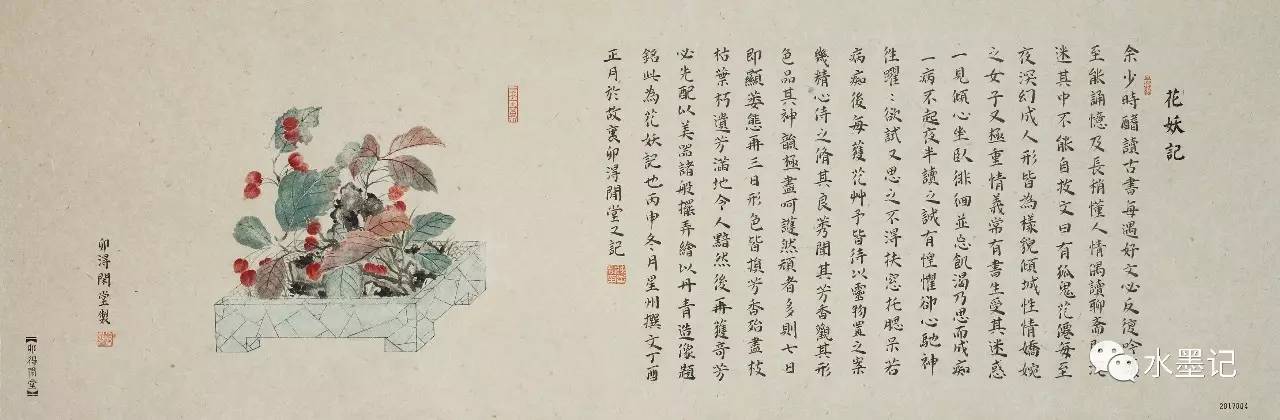 花妖記
余少時醋讀古書每遇好文必反復吟
至能誦憶及長稍懂人情偶讀聊齋
迷其中不能自拔文曰有狐鬼花僊每至
夜深幻成人形皆為樣貌傾城性情嬌婉
之女子又極重情義常有書生受其迷惑
一見傾心坐臥徘徊並忘飢渴乃思而成痴
一病不起夜半讀之誠有惶懼卻心馳神
徃躍〻欲試又思之不得扶窓托腮呆若
病痴後每獲花艸予皆待以靈物置之案
幾精心侍之脩其良莠聞其芳香觀其形
色品其神韻極盡呵護然頑者多則七日
即顯萎態再三日形色皆損芳香殆盡枝
枯葉朽遺芳滿地令人黯然後再獲奇芳
必先配以美器諸般擺弄繪以丹青造像題
銘此為花妖記也丙申冬月星州撰文丁酉
正月於故裏卯得閒堂之記
卯得閒堂製
【卯得閒堂】
水墨记
2017004